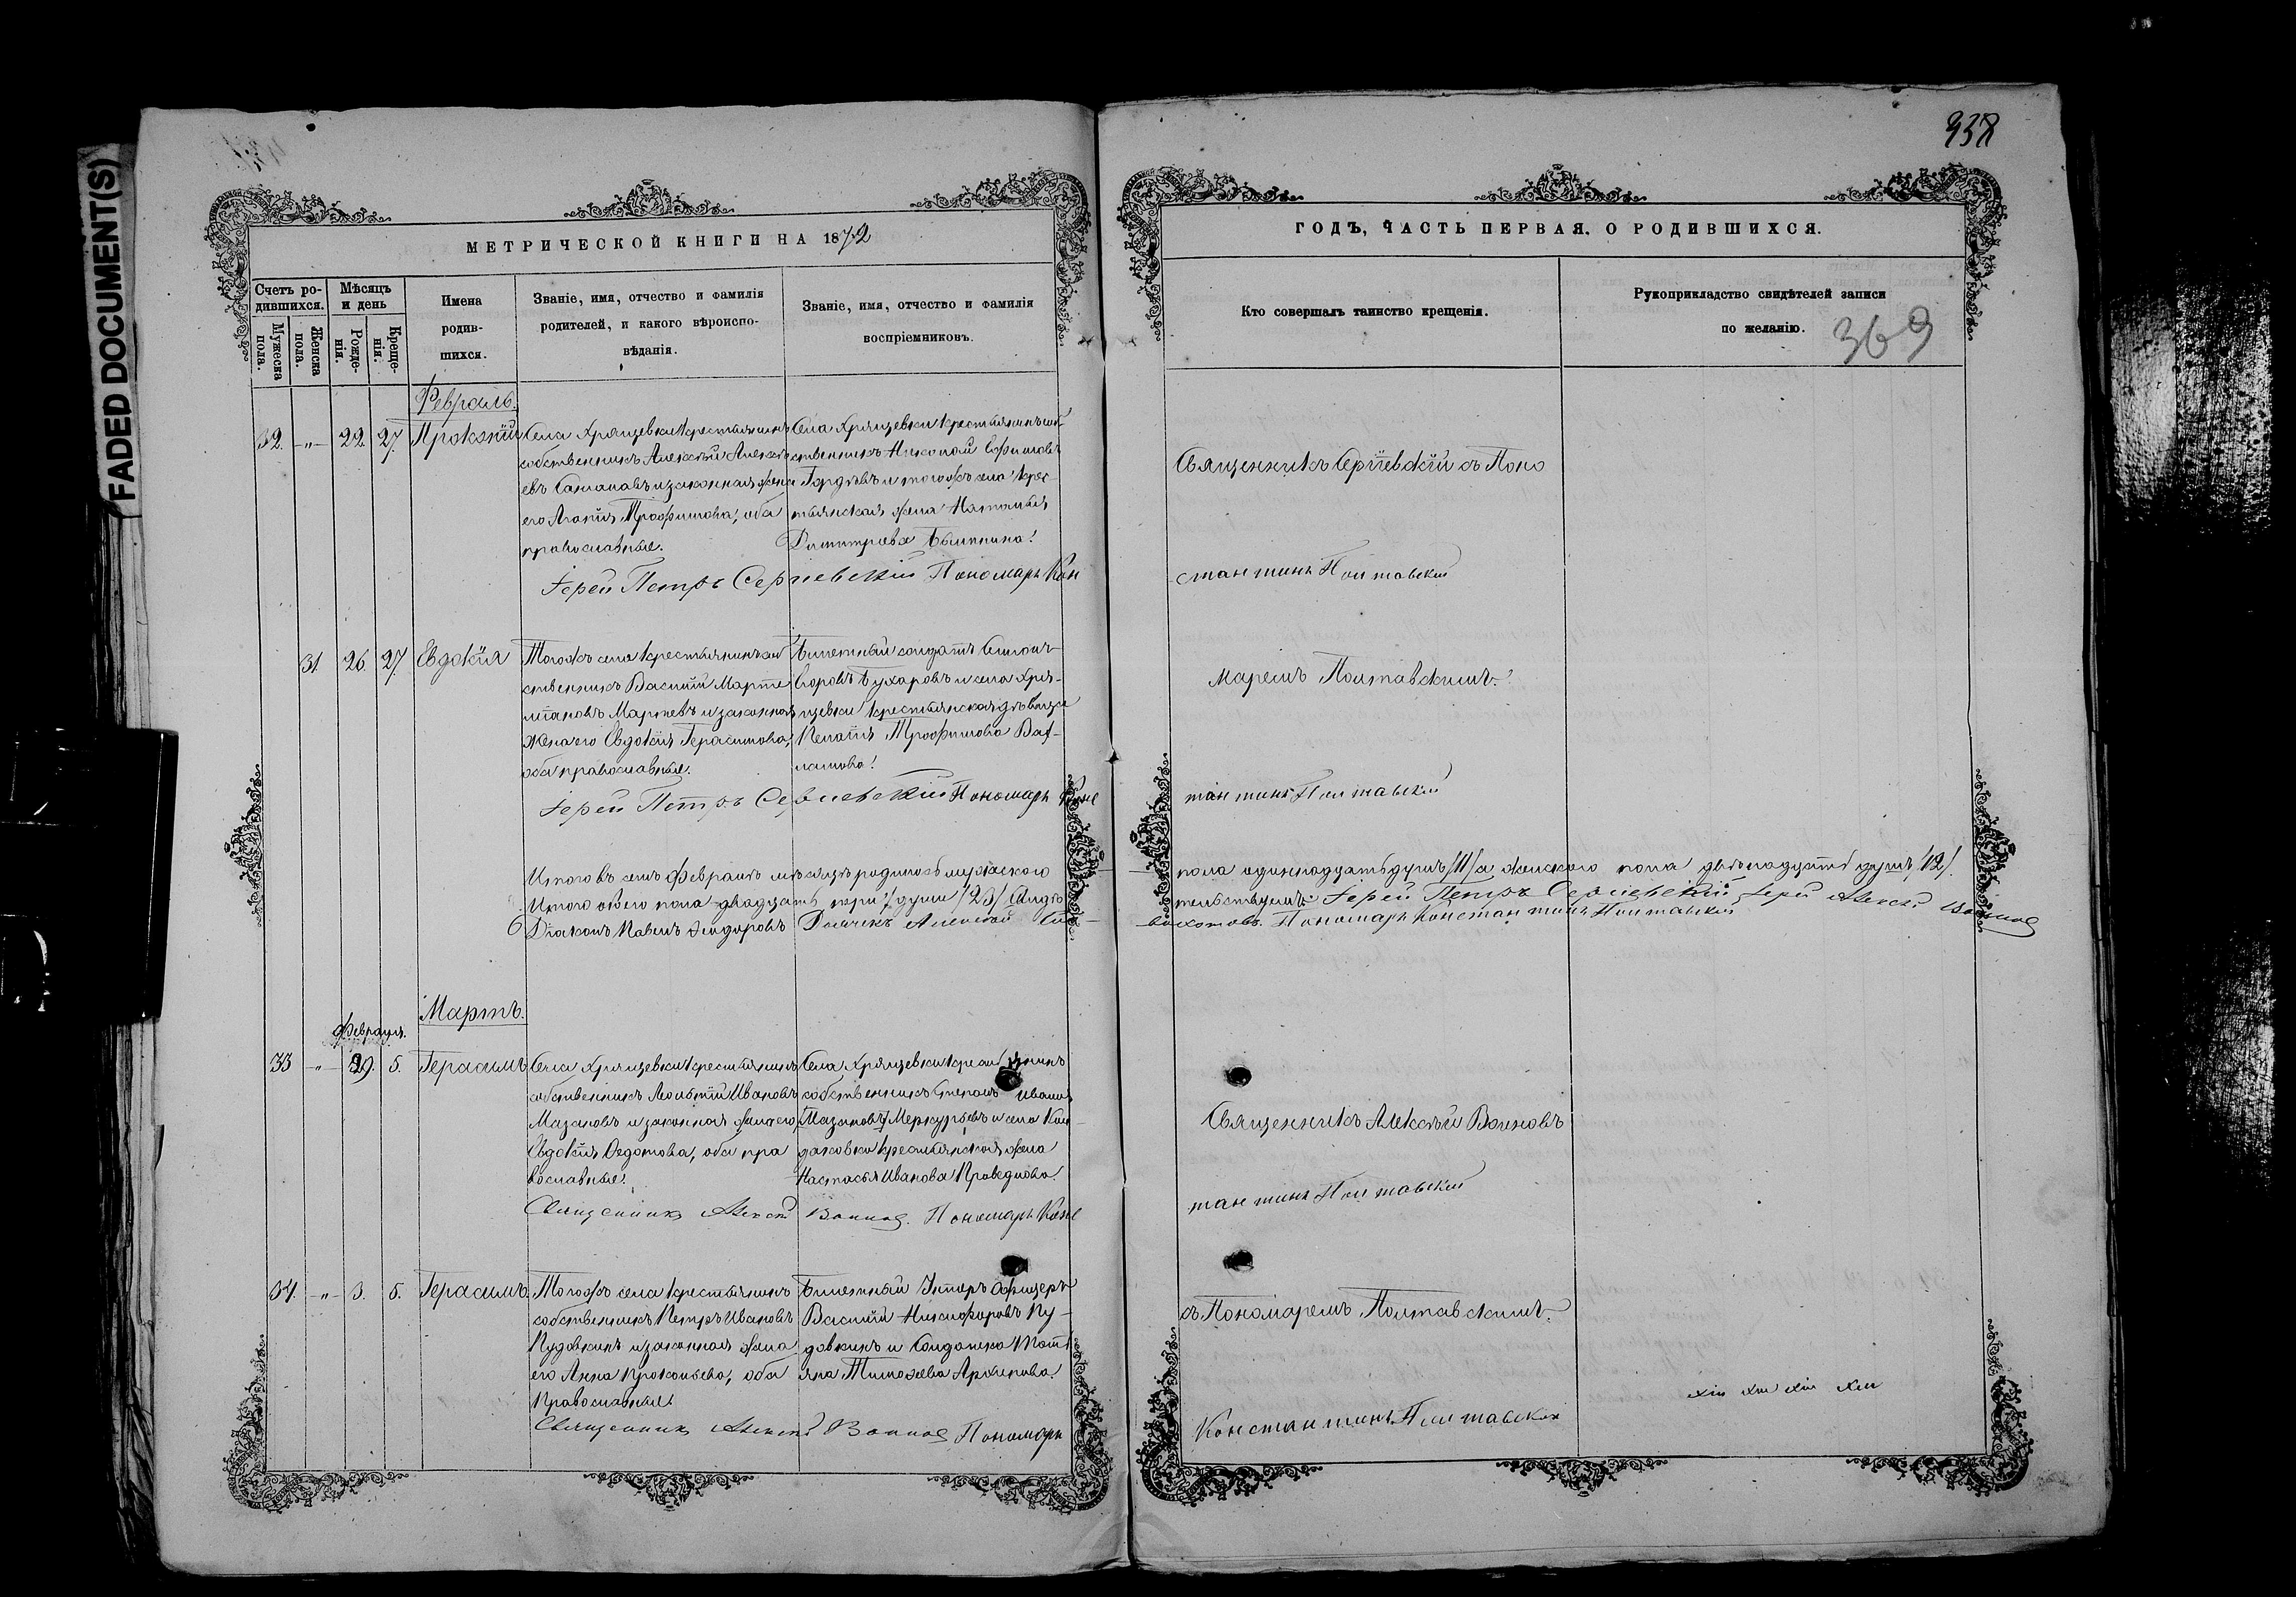 FADED DOCUMENT(S)
338
МЕТРИЧЕСКОЙ КНИГИ НА 1872
Счетъ ро-
дившихся.
Мужеска
пола.
Женска
пола.
Мѣсяцъ
и день
Рожде-
нія.
Креще-
нія.
Имена
родив-
шихся.
Званіе, имя, отчество и фамилія
родителей, и какого вѣроиспо-
вѣданія.
Званіе, имя, отчество и фамилія
воспріемниковъ.
Февраль.
32. -„- 22. 27. Прокопій
Села Хрящевки крестьянинъ
собственникъ Алексѣй Алексѣ
евъ и законная жена
его Агапія Трофимова, оба
православные.
Села Хрящевки крестьянинъ соб-
ственникъ Николай Ефимовъ
Гордѣевъ и тогожъ села крес-
тьянская жена Наталья
Димитріева
Іерей Петръ Сергіевскій Пономарь Кон
31. 26. 27. Евдокія
Тогожъ села крестьянинъ соб
ственникъ Василій Марте
міановъ и законная
жена его Евдокія Герасимова,
оба православные.
Билетный солдатъ
Бухаровъ и села Хря-
щевки крестьянская дѣвица
Пелагія Трофимова
Іерей Петръ Сергіевскій Пономарь Конс
Итого въ семъ Февралѣ мѣсяцѣ родилось мужескаго
Итого обоего пола двадцать три души /23/ Свидѣ
Діаконъ Павелъ Ѳеодоровъ Дьячекъ Алексѣй
Мартъ.
Февраля.
33 -„- 29. 5. Герасимъ
Села Хрящевки крестьянинъ
собственникъ Леонтій Ивановъ
Мазановъ и законная жена его
Евдокія Ѳедотова, оба пра
вославные.
Села Хрящевки крестьянинъ
собственникъ Степанъ Ивановъ
Мазановъ / Меркурьевъ и села Кан
даковки крестьянская жена
Настасья Иванова
Священникъ Алексѣй Воиновъ. Пономарь Конс
34. -„- 3. 5. Герасимъ.
Тогожъ села крестьянинъ
собственникъ Петръ Ивановъ
Пудовкинъ и законная жена
его Анна Прокопьева, оба
православные
Билетный Унтеръ Офицеръ
Василій Никифоровъ Пу-
довкинъ и Солдатка Тать
яна Тимофеева Архипова.
Священникъ Алексѣй Воиновъ Пономарь
ГОДЪ, ЧАСТЬ ПЕРВАЯ, О РОДИВШИХСЯ.
Кто совершалъ таинство крещенія.
Рукоприкладство свидѣтелей записи
по желанію.
369
Священникъ Сергіевскій съ Поно
стантинъ Полтавскій
маремъ Полтавскимъ.
тантинъ Полтавскій
пола одиннадцать душъ /11/ а женскаго пола двѣнадцать душъ /12/.
тельствуемъ: Іерей Петръ Сергіевскій Іерей Алексѣй Воиновъ
Пономарь Константинъ Полтавскій
Священникъ Алексѣй Воиновъ
тантинъ Полтавскій
съ Пономаремъ Полтавскимъ.
Константинъ Полтавскій